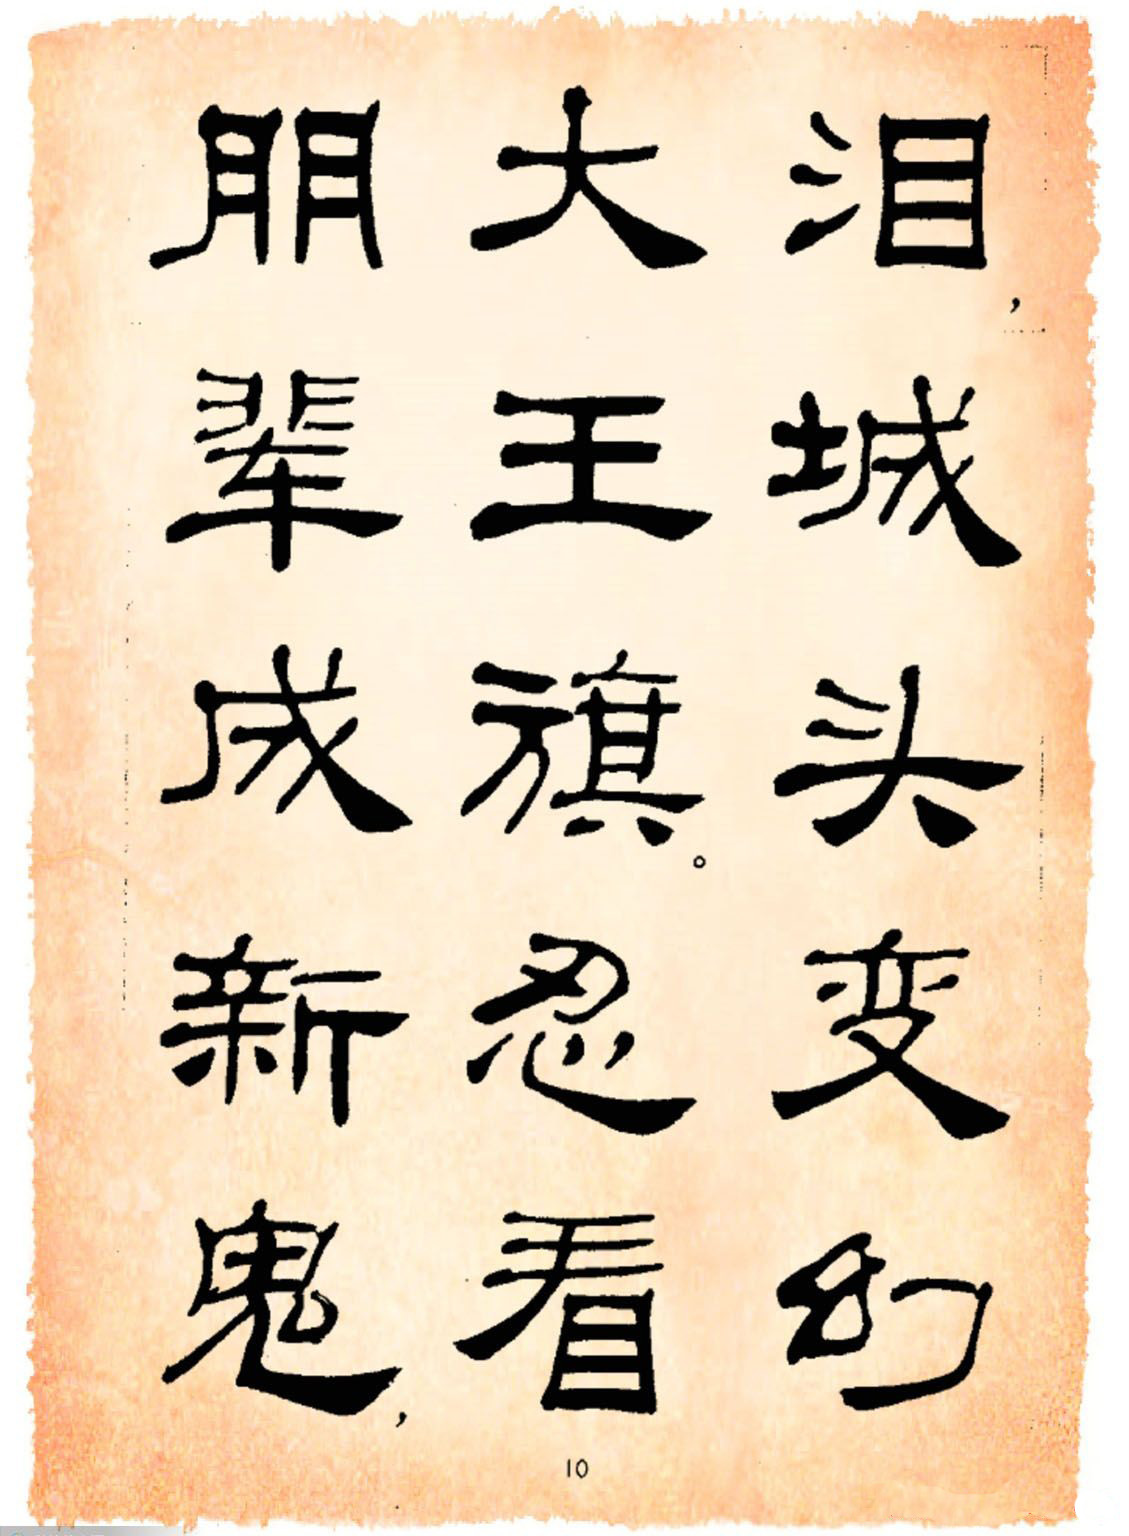 泪，城头变幻
大王旗。忍看
朋辈成新鬼，
10